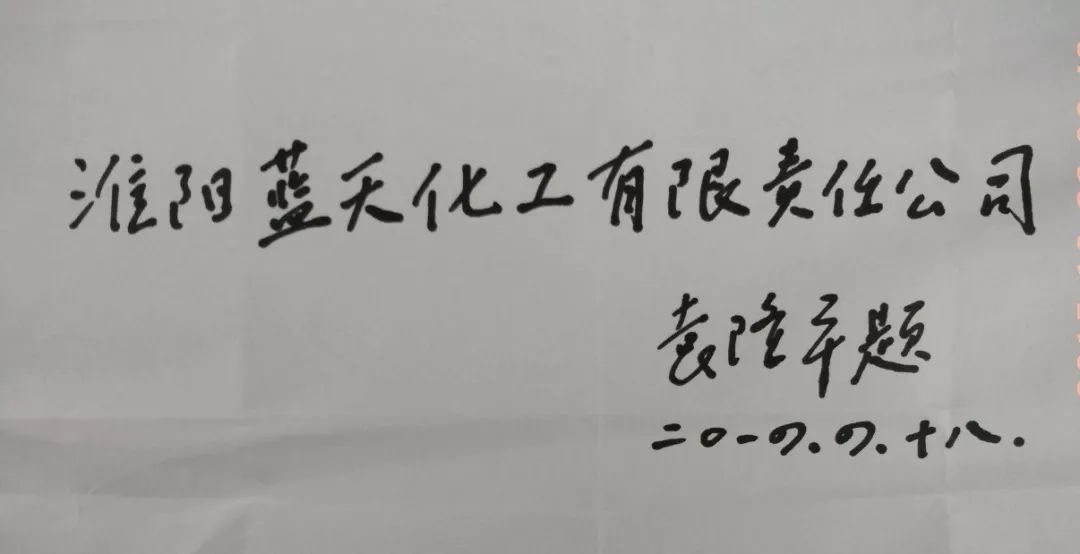 淮阳蓝天化工有限责任公司
袁隆平题
二〇一四.四.十八.